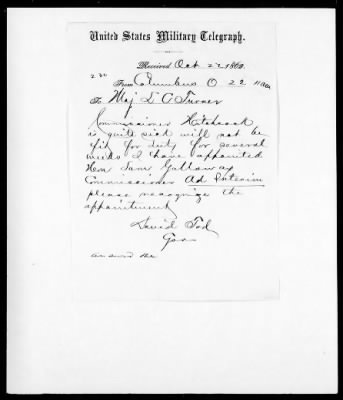 United States Military Telegraph.
Received Oct 22 1863.
2 30
From Columbus O 22 11 am
To Maj L C Turner
Commissioner Hitchcock
is quite sick will not be
fit for duty for several
weeks I have appointed
Hon Saml Galloway
Commissioner Ad Interim
please recognize the
appointment
David Tod
Gov